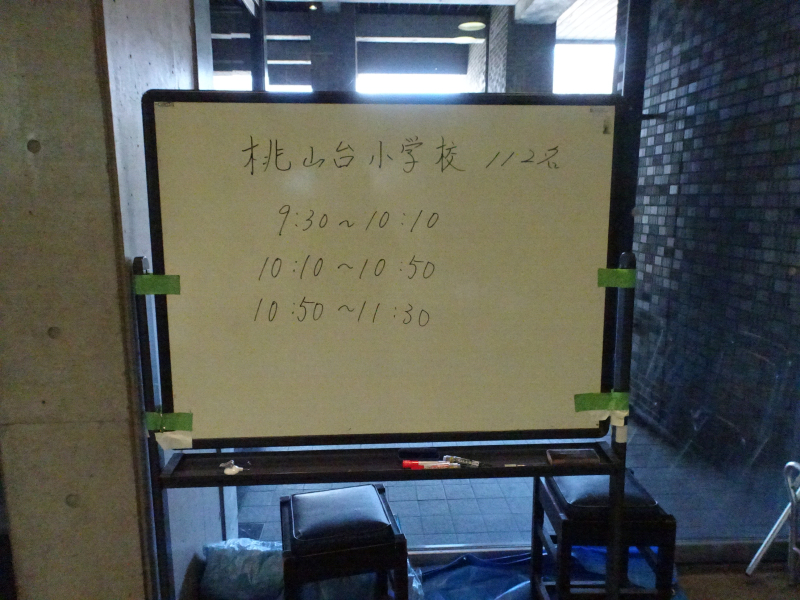 桃山台小学校 112名
9:30~10:10
10:10~10:50
10:50~11:30